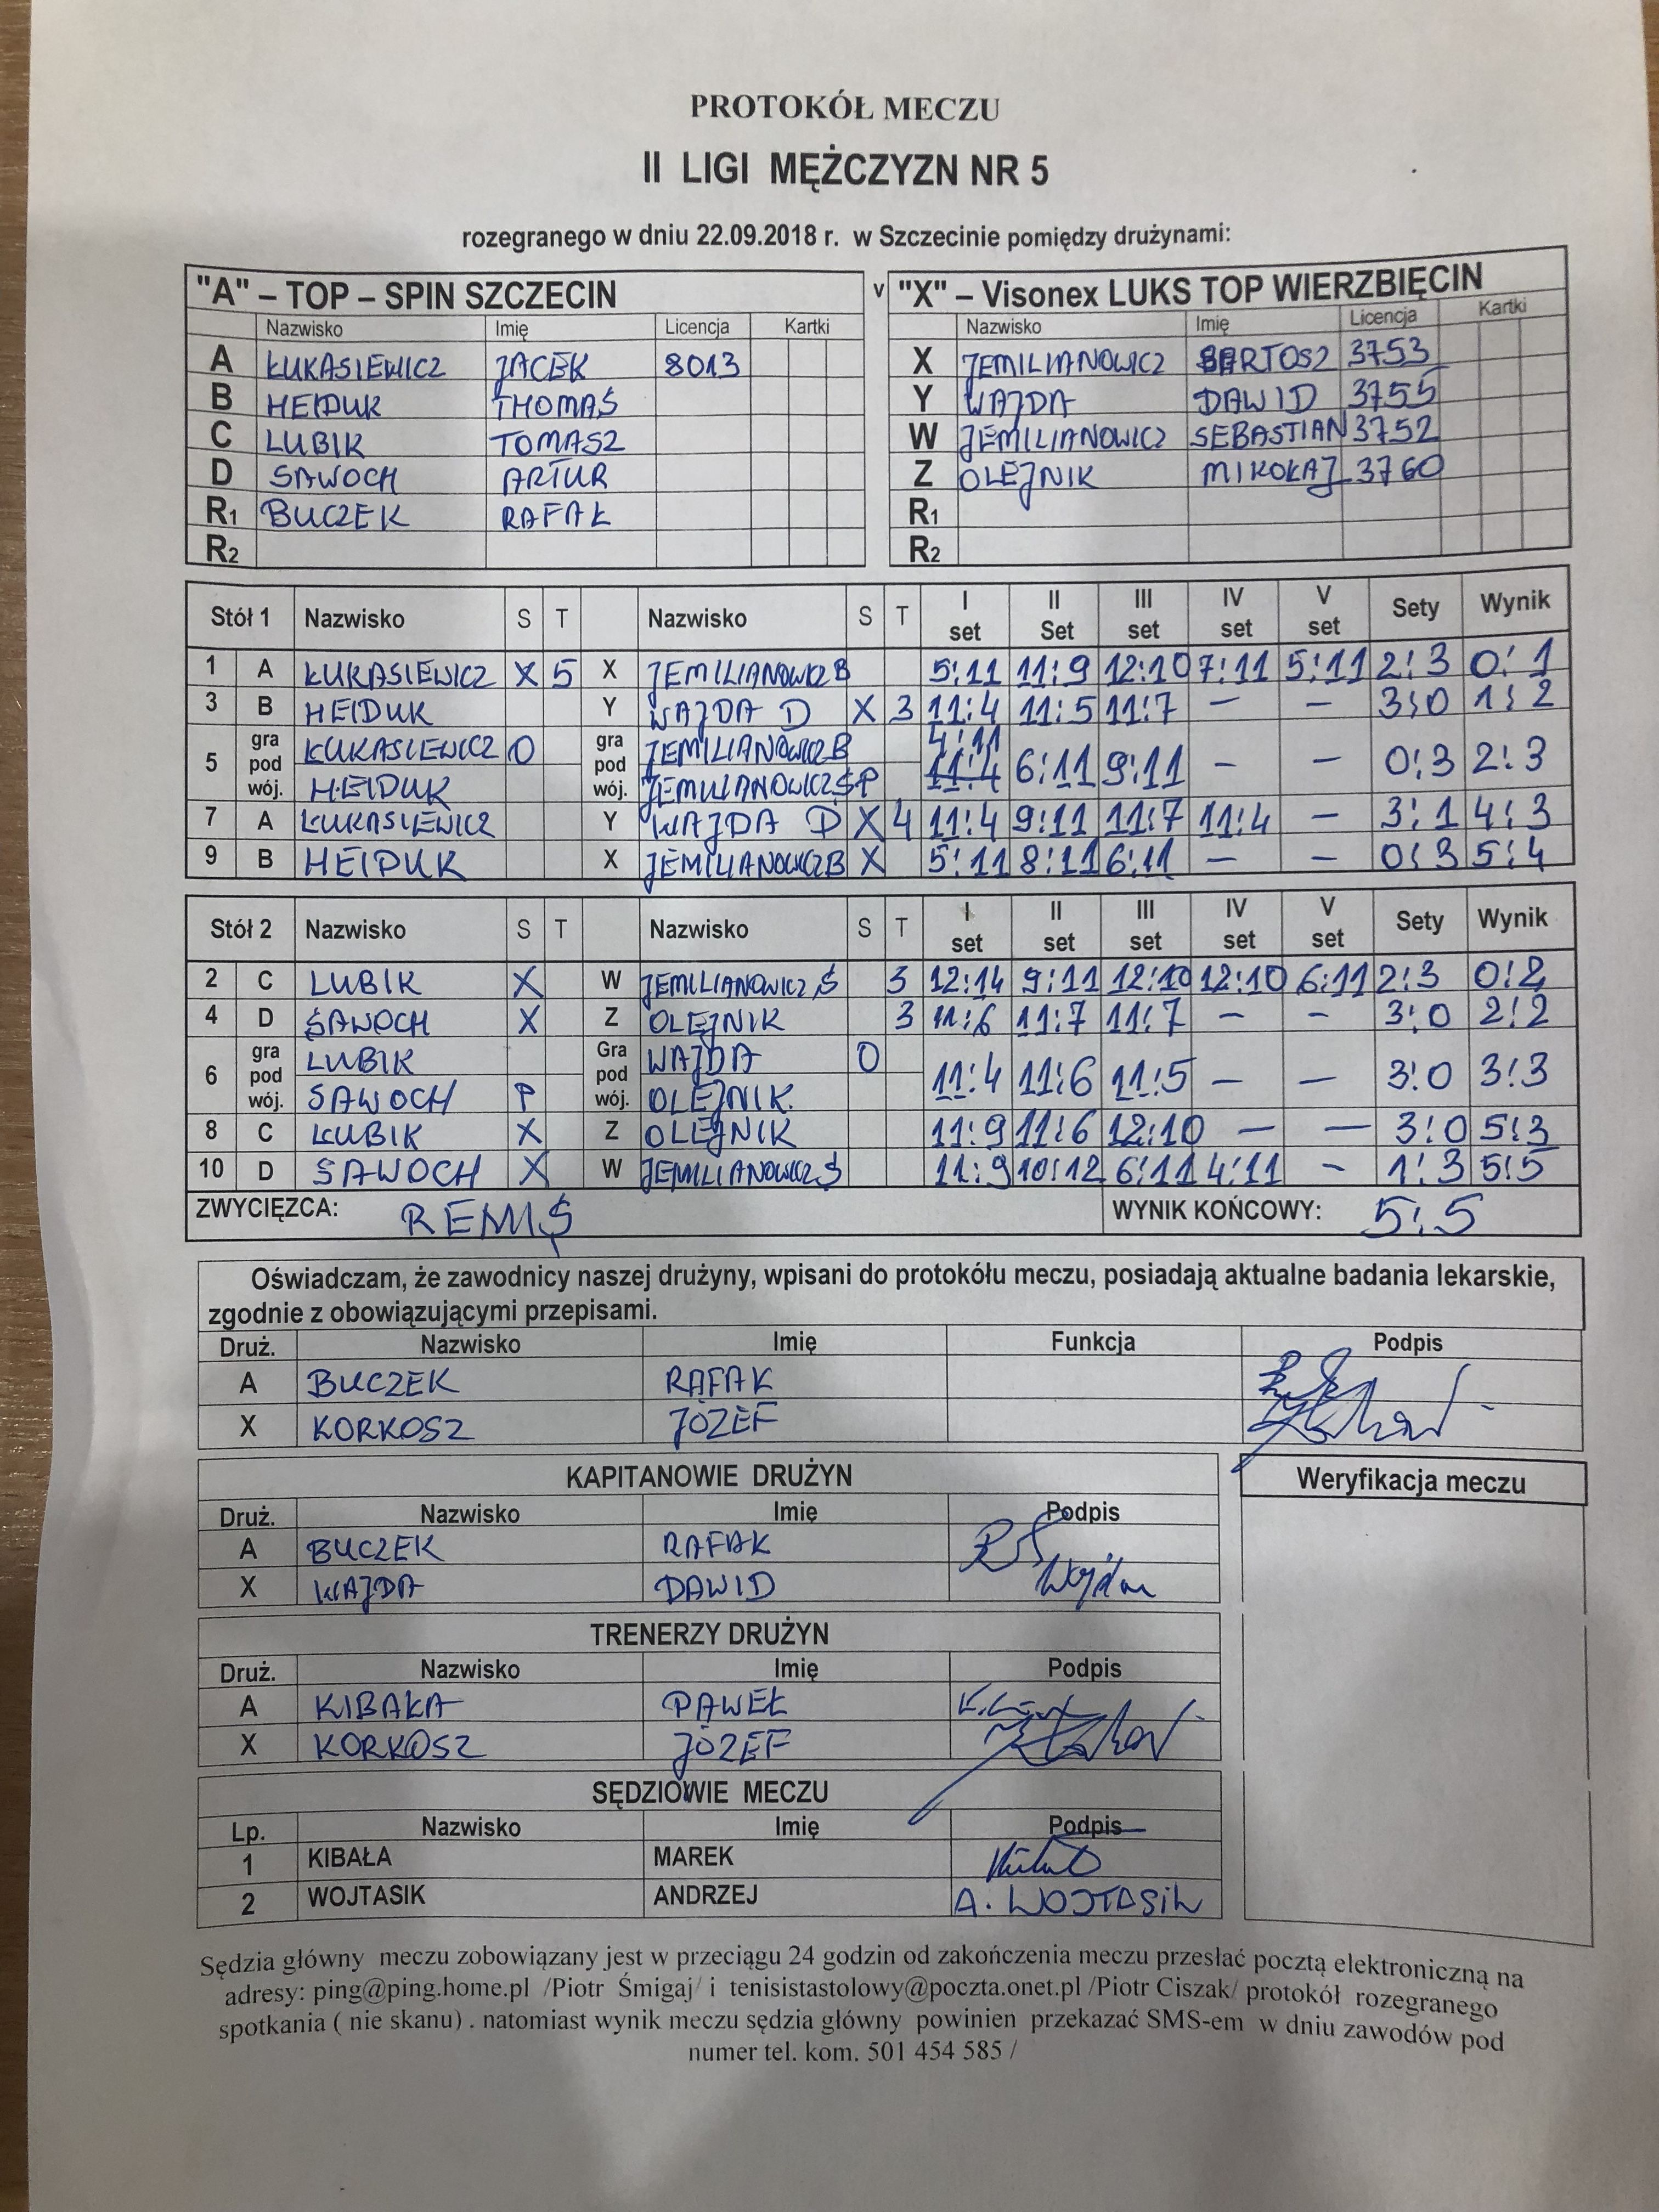 PROTOKÓŁ MECZU
II LIGI MĘŻCZYZN NR 5
rozegranego w dniu 22.09.2018 r. w Szczecinie pomiędzy drużynami:
"A" – TOP – SPIN SZCZECIN v "X" – Visonex LUKS TOP WIERZBIĘCIN
Nazwisko Imię Licencja Kartki Nazwisko Imię Licencja Kartki
A ŁUKASIEWICZ JACEK 8013 X JEMILIANOWICZ BARTOSZ 3753
B HEIDUK THOMAS Y WAJDA DAWID 3755
C LUBIK TOMASZ W JEMILIANOWICZ SEBASTIAN 3752
D SAWOCH ARTUR Z OLEJNIK MIKOŁAJ 3760
R1 BUCZEK RAFAŁ R1
R2 R2
Stół 1 Nazwisko S T Nazwisko S T I set II Set III set IV set V set Sety Wynik
1 A ŁUKASIEWICZ X 5 X JEMILIANOWICZ B 5:11 11:9 12:10 7:11 5:11 2:3 0:1
3 B HEIDUK Y WAJDA D X 3 11:4 11:5 11:7 – – 3:0 1:2
5 gra pod wój. ŁUKASIEWICZ O gra pod wój. JEMILIANOWICZ B 4:11 11:4 6:11 9:11 – – 0:3 2:3
HEIDUK JEMILIANOWICZ S P
7 A ŁUKASIEWICZ Y WAJDA D X 4 11:4 9:11 11:7 11:4 – 3:1 4:3
9 B HEIDUK X JEMILIANOWICZ B X 5:11 8:11 6:11 – – 0:3 5:4
Stół 2 Nazwisko S T Nazwisko S T I set II set III set IV set V set Sety Wynik
2 C LUBIK X W JEMILIANOWICZ S 3 12:14 9:11 12:10 12:10 6:11 2:3 0:2
4 D SAWOCH X Z OLEJNIK 3 11:6 11:7 11:7 – – 3:0 2:2
6 gra pod wój. LUBIK Gra pod wój. WAJDA O 11:4 11:6 11:5 – – 3:0 3:3
SAWOCH P OLEJNIK
8 C LUBIK X Z OLEJNIK 11:9 11:6 12:10 – – 3:0 5:3
10 D SAWOCH X W JEMILIANOWICZ S 11:9 10:12 6:11 4:11 – 1:3 5:5
ZWYCIĘZCA: REMIS WYNIK KOŃCOWY: 5:5
Oświadczam, że zawodnicy naszej drużyny, wpisani do protokółu meczu, posiadają aktualne badania lekarskie,
zgodnie z obowiązującymi przepisami.
Druż. Nazwisko Imię Funkcja Podpis
A BUCZEK RAFAŁ
X KORKOSZ JÓZEF
KAPITANOWIE DRUŻYN Weryfikacja meczu
Druż. Nazwisko Imię Podpis
A BUCZEK RAFAŁ
X WAJDA DAWID Wajda
TRENERZY DRUŻYN
Druż. Nazwisko Imię Podpis
A KIBAŁA PAWEŁ
X KORKOSZ JÓZEF
SĘDZIOWIE MECZU
Lp. Nazwisko Imię Podpis
1 KIBAŁA MAREK
2 WOJTASIK ANDRZEJ A. WOJTASIK
Sędzia główny meczu zobowiązany jest w przeciągu 24 godzin od zakończenia meczu przesłać pocztą elektroniczną na
adresy: ping@ping.home.pl /Piotr Śmigaj/ i tenisistastolowy@poczta.onet.pl /Piotr Ciszak/ protokół rozegranego
spotkania ( nie skanu) . natomiast wynik meczu sędzia główny powinien przekazać SMS-em w dniu zawodów pod
numer tel. kom. 501 454 585 /